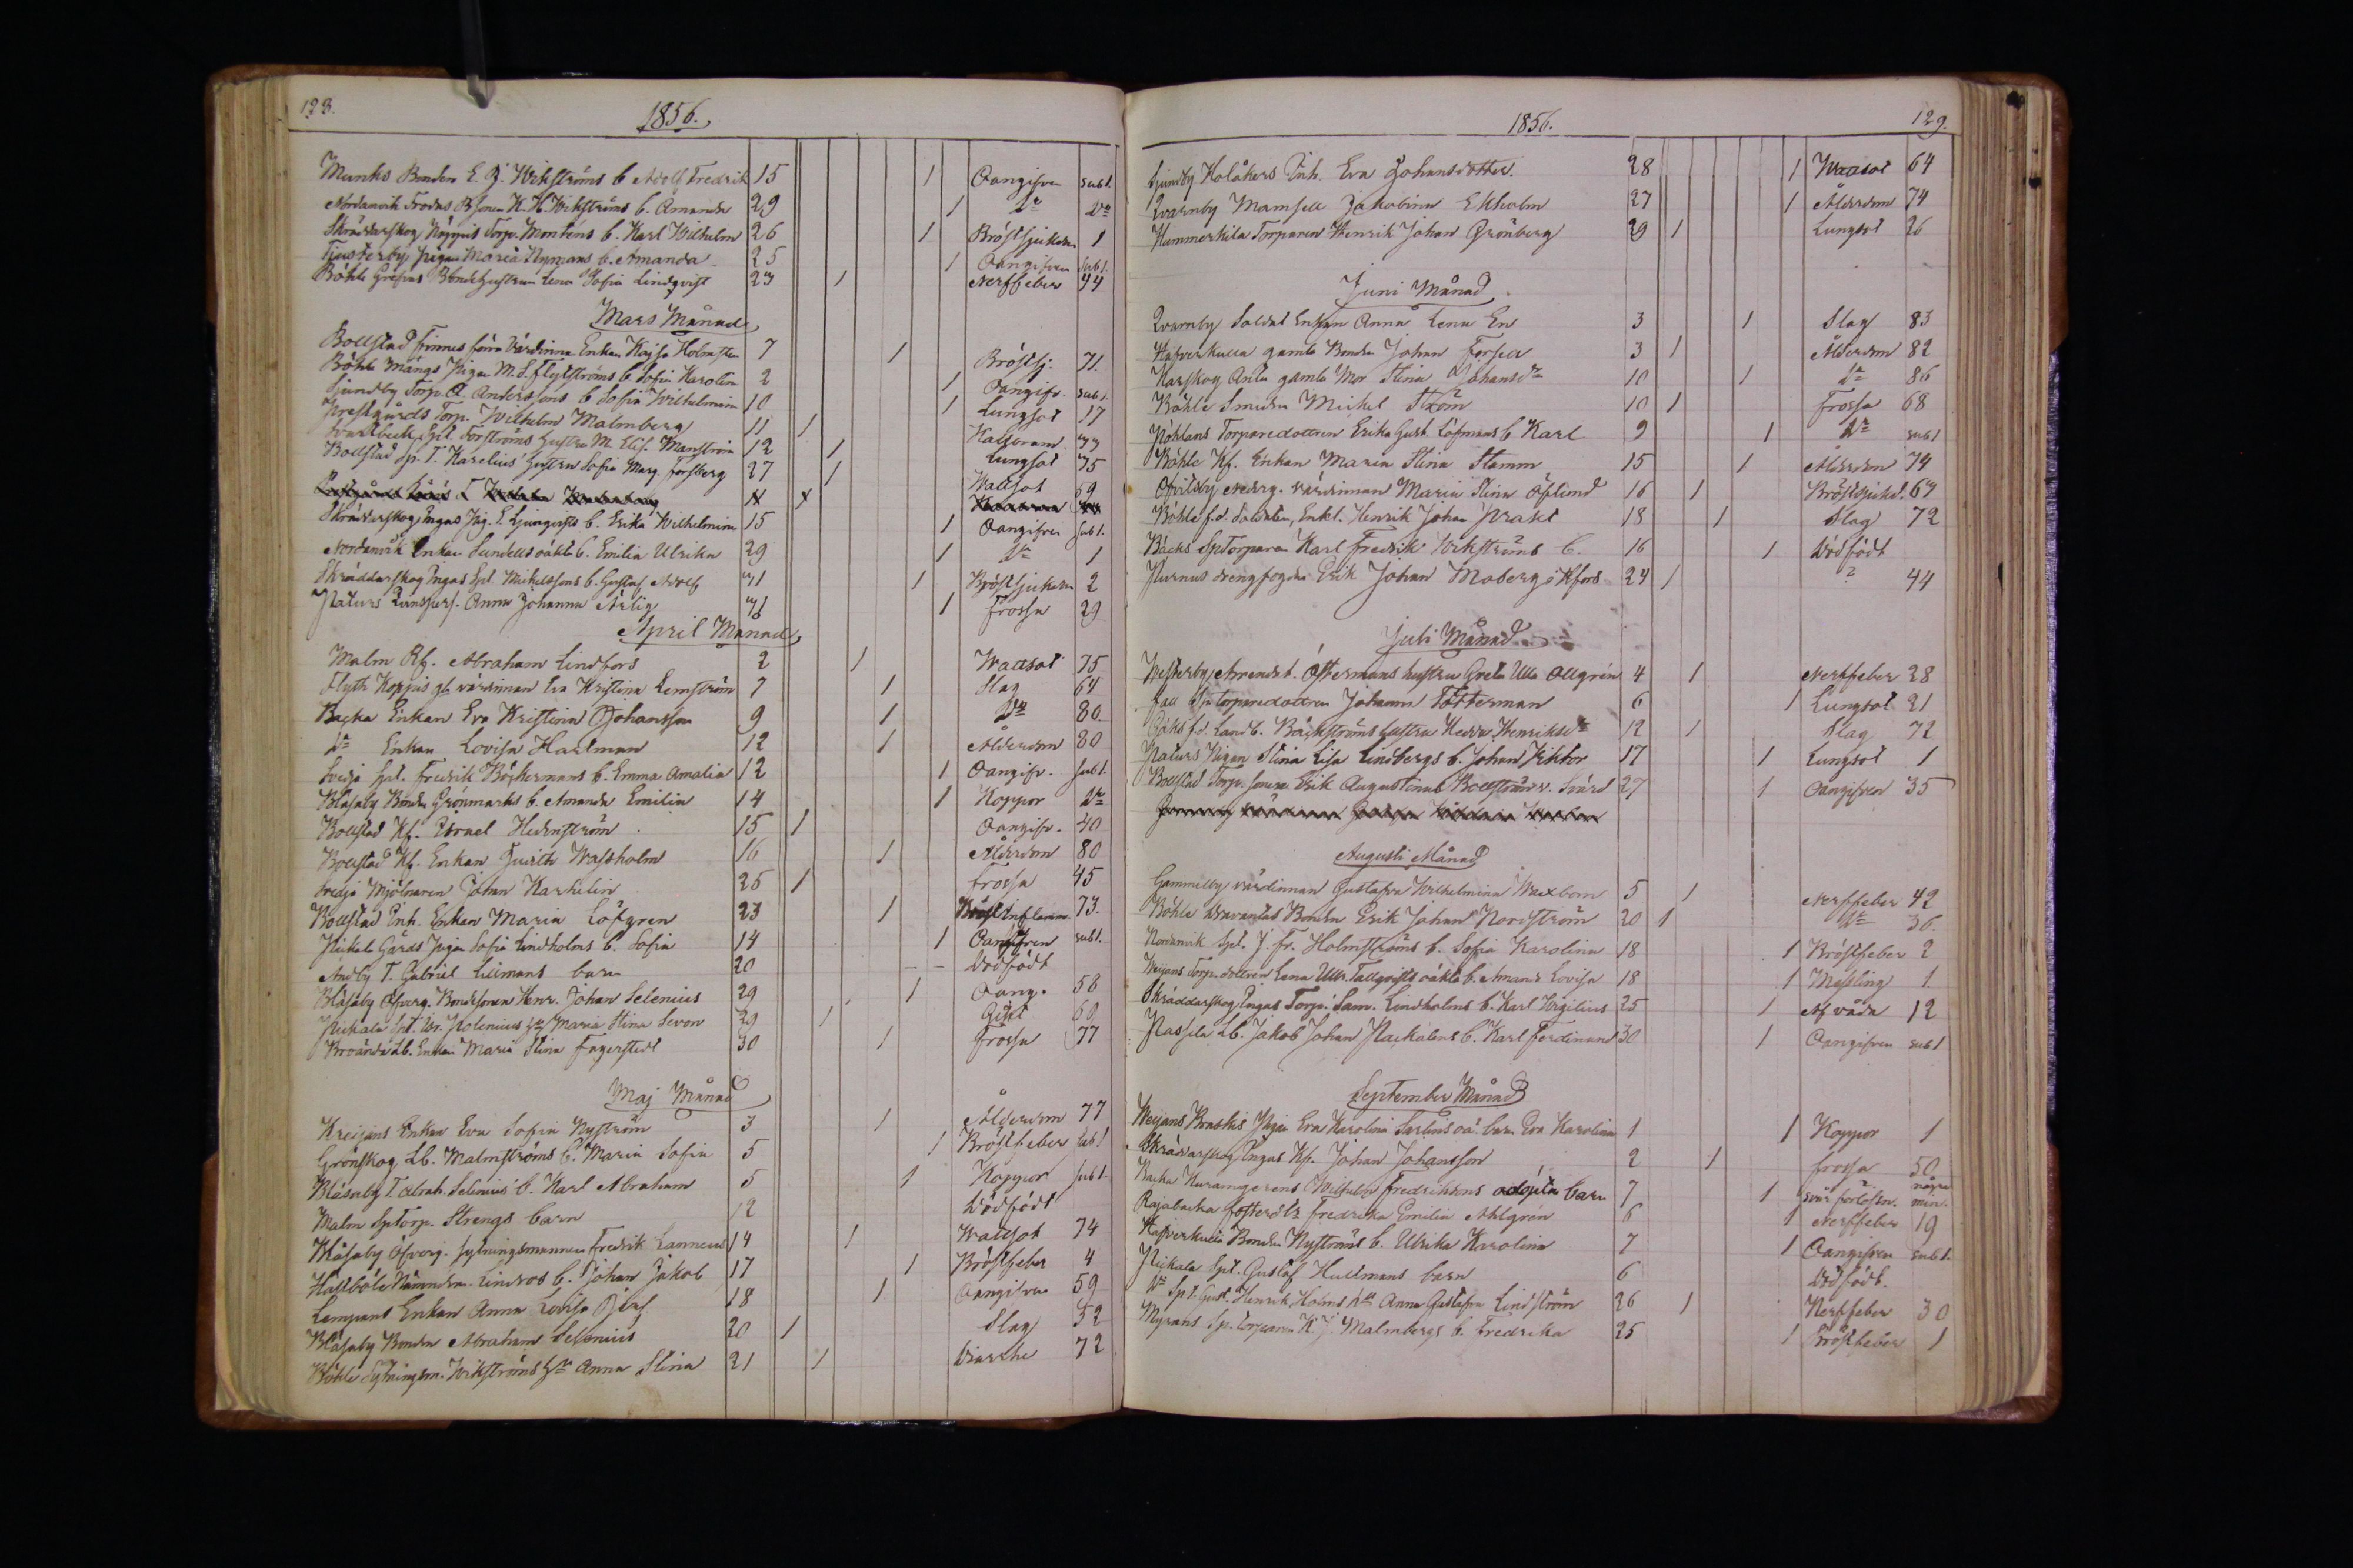 123.
1856.
Munks Bonden E. G. Wikströms b. Adolf Fredrik 15 1 Oangifven sub 1.
Nordanvik Frodus B. sonen K. H. Wikströms b. Amanda 29 1 Do Do
Skräddarskog Torp. Mortens b. Karl Wilhelm 26 1 Bröstsjukdom 1
Tjusterby pigan Maria Nymans b. Amanda 25 1 Oangifven sub 1.
Böhle Grefvas Bondehustrun Lena Sofia Lindqvist 27 1 Nerffeber 44
Mars Månad
Bollstad Finnes förra Värdinna Enkan Kajsa Holmsten 7 1 Bröstsj. 71.
Böhle Mångs Pigan M. S. Flytströms b. Sofia Karolin 2 1 Oangifv. sub 1.
Sjundby Torp. A. Anderssons b. Sofia Wilhelmina 10 1 Lungsot 17
Prestgårds Torp. Wilhelm Malmberg 11 1 Kallbrand 77
Svartbäck Spt. Forströms hustru M. Elis. Manström 12 1 Lungsot 75
Bollstad Sp. T. Karelius' hustru Sofia Marg. Forsberg 27 1 Wattsot 69
Skräddarskog Ingas Pig. E. Ljungqvists b. Erika Wilhelmina 15 1 Oangifven sub 1.
Nordanvik Enkan Sundells oäkta b. Emilia Ulrika 29 1 Do 1
Skräddarskog Ingas Spt. Mickelssons b. Gustaf Adolf 31 1 Bröstsjukdom 2
Paturs Qvinspers. Anna Johanna Ärlig 31 1 Frossa 29
April Månad
Malm Rf. Abraham Lindfors 2 1 Wattsot 75
Flyth Koppis gl. värdinnan Eva Kristina Lemström 7 1 Slag 64
Backa Enkan Eva Kristina Johansson 9 1 Do 80
Do Enkan Lovisa Hartman 12 1 Ålderdom 80
Svedja Spt. Fredrik Böckermans b. Emma Amalia 12 1 Oangifv. sub 1.
Blåsaby Bonden Grönmarks b. Amanda Emilia 14 1 Koppor Do
Bollstad Kf. Israel Hedenström 15 1 Oangifv. 40
Bollstad Kf. Enkan Judith Wassholm 16 1 Ålderdom 80
Svedja Mjölnaren Johan Karhelin 25 1 Frossa 45
Bollstad Inh. Enkan Maria Löfgren 23 1 Bröst Inflamm. 73.
Pickala Gårds Pigan Sofia Lindholms b. Sofia 14 1 Oangifven sub 1.
Andby T. Gabriel Lillmans barn 20 - - Dödfödt
Blåsaby Öfverg. Bondesonen Henr. Johan Selenius 29 1 Oang. 58
Pickala Inh. Polenius hu Maria Stina Sevon 29 1 Gikt 69
Broända Lb. Enkan Maria Stina Fagerstedt 30 1 Frossa 77
Maj Månad
Kreijans Enkan Eva Sofia Nyström 3 1 Ålderdom 77
Grönskog Lb. Malmströms b. Maria Sofia 5 1 Bröstfeber sub 1
Blåsaby T. Abrah. Selenius' b. Karl Abraham 5 1 Koppor sub 1.
Malm Sp Torp. Strengs barn 12 Dödfödt
Blåsaby Öfverg. Sytningsmannen Fredrik Lannenius 14 1 Wattsot 74
Hallböle Nämndem. Lindros b. Johan Jakob 17 1 Bröstfeber 4
Lempans Enkan Anna Lovisa 18 1 Oangifven 59
Blåsaby Bonden Abraham Selenius 20 1 Slag 52
Böhle Sytningsm. Wikströms hu Anna Stina 21 1 Diarrhe 72
1856.
129.
Sjundby Kolåkers Inh. Eva Johansdotter. 28 1 Wattsot 64
Qvarnby Mamsell Jakobina Ekholm 27 1 Ålderdom 74
Hummerkila Torparen Henrik Johan Grönberg 29 1 Lungsot 26
Juni Månad
Qvarnby Soldat Enkan Anna Lena En 3 1 Slag 83
Hafverkulla gamla Bonden Johan Forsell 3 1 Ålderdom 82
Karskog Anta gamla Mor Stina Johansdr 10 1 Do 86
Böhle Smeden Mickel Ström 10 1 Frossa 68
Pöhlans Torparedottren Erika Gust. Löfmans b. Karl 9 1 Do sub 1
Böhle Kf. Enkan Maria Stina Stamm 15 1 Ålderdom 74
Ofvitsby Nederg. Värdinnan Maria Stina Öflund 16 1 Bröstsjukd. 67
Böhle f.d. Soldaten, Enkl. Henrik Johan Prakt 18 1 Slag 72
Bäcks Sp Torparen Karl Fredrik Wikströms b. 16 1 Dödfödt
Purnus drengfogden Erik Johan Moberg i Hfors 24 1 ? 44
Juli Månad
Westerby Arendat. Östermans hustru Greta Ulla Allgrén 4 1 Nerffeber 28
Fall Sp torparedottren Johanna Tötterman 6 1 Lungsot 21
f.d. Landb. Bäckströms hustru Hedda Henriksdr 12 1 Slag 72
Paturs Pigan Stina Lisa Lindbergs b. Johan Viktor 17 1 Lungsot 1
Bollstad Torp. sonen Erik Augustinus Bollström v. Svärd 27 1 Oangifven 35
Augusti Månad
Gammelby värdinnan Gustafva Wilhelmina Waxbom 5 1 Nerffeber 42
Böhle Dravantas Bonden Erik Johan Nordström 20 1 Do 36.
Nordanvik Spt. J. Fr. Holmströms b. Sofia Karolina 18 1 Bröstfeber 2
Weijans Torp. dottren Lena Ulr. Tallqvists oäkta b. Amanda Lovisa 18 1 Messling 1
Skräddarskog Ingas Torp. Sam. Lindholms b. Karl Virgilius 25 1 Af våda 12
Passila Lb. Jakob Johan Packalens b. Karl Ferdinand 30 1 Oangifven sub 1
September Månad
Weijans Braskis Pigan Eva Karolina Sarlins oä. barn Eva Karolina 1 1 Koppor 1
Skräddarskog Ingas Kf. Johan Johansson 2 1 Frossa 50
Backa Wilhelm Fredrikssons odöpta barn 7 1 svår förlossn. några min.
Rajabacka fosterdtr Fredrika Emilia Ahlgrén 6 1 Nerffeber 19
Hafverkulla Bonden Nyströms b. Ulrika Karolina 7 1 Oangifven sub 1.
Pickala Spt. Gustaf Hultmans barn 6 Dödfödt.
Do Spt. Gust. Henrik Holms hu Anna Gustafva Lindström 26 1 Nerffeber 30
Myrans Sp. torparen K. J. Malmbergs b. Fredrika 25 1 Bröstfeber 1